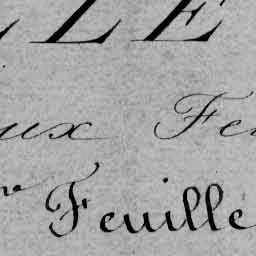 LLE
ux Fe
Feuille